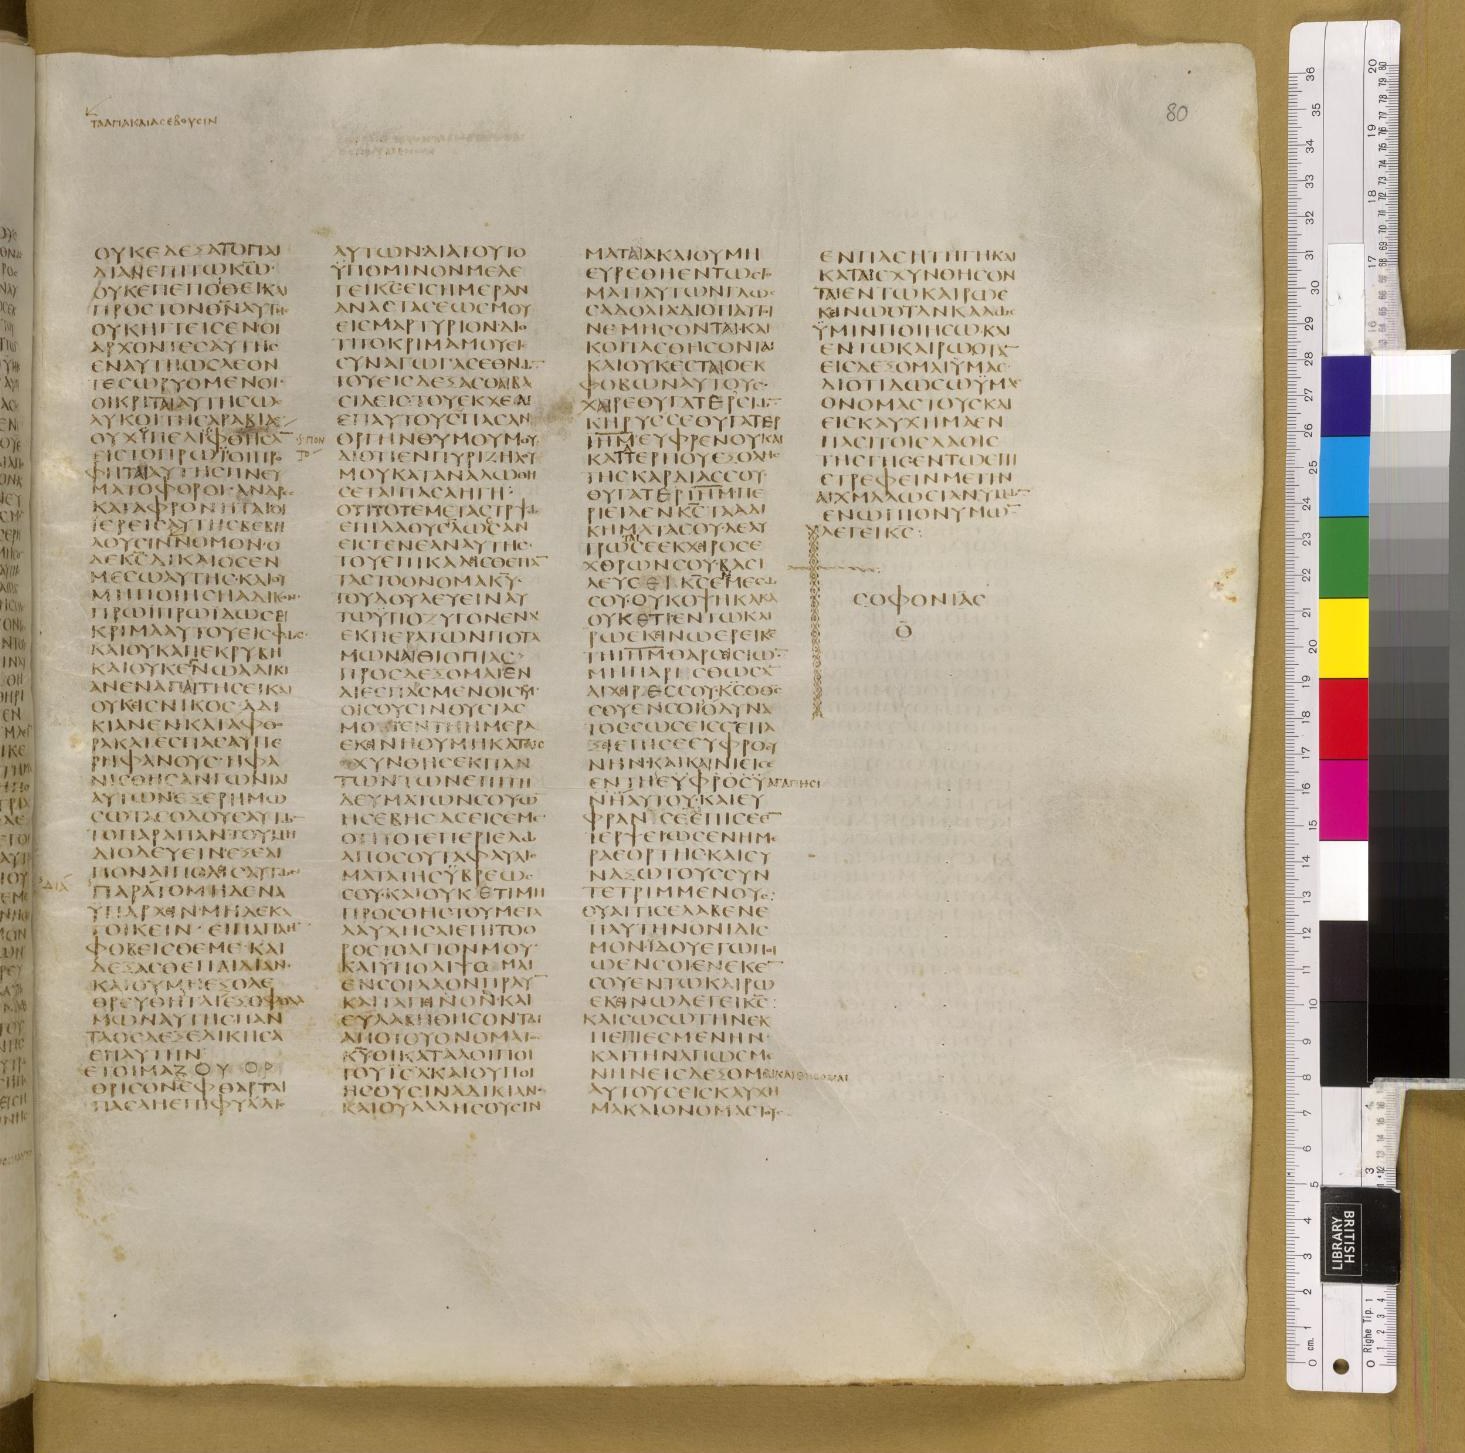 80
ΤΑΑΓΙΑΚΑΙΑϹΕΒΟΥϹΙΝ
ΟΥΚΕΔΕΞΑΤΟΠΑΙ
ΔΙΑΝΕΠΙΤΩΚΩ·
ΟΥΚΕΠΕΠΟΙΘΕΙΚΑΙ
ΠΡΟϹΤΟΝΘΝΑΥΤΗϹ
ΟΥΚΗΓΓΕΙϹΕΝΟΙ
ΑΡΧΟΝΤΕϹΑΥΤΗϹ
ΕΝΑΥΤΗΩϹΛΕΟΝ
ΤΕϹΩΡΥΟΜΕΝΟΙ·
ΟΙΚΡΙΤΑΙΑΥΤΗϹΩϹ
ΛΥΚΟΙΤΗϹΑΡΑΒΙΑϹ
ΟΥΧΥΠΕΛΙΦΘΗϹΑ
ΕΙϹΤΟΠΡΩΪΟΙΠΡΟ
ΦΗΤΑΙΑΥΤΗϹΠΝΕΥ
ΜΑΤΟΦΟΡΟΙ·ΑΝΔΡΕϹ
ΚΑΤΑΦΡΟΝΗΤΑΙΟΙ
ΙΕΡΕΙϹΑΥΤΗϹΒΕΒΗ
ΛΟΥϹΙΝΝΟΜΟΝ·Ο
ΔΕΚϹΔΙΚΑΙΟϹΕΝ
ΜΕϹΩΑΥΤΗϹ·ΚΑΙΟΥ
ΜΗΠΟΙΗϹΗΑΔΙΚΟΝ·
ΠΡΩΪΠΡΩΪΔΩϹΕΙ
ΚΡΙΜΑΑΥΤΟΥΕΙϹΦΩϹ
ΚΑΙΟΥΚΑΠΕΚΡΥΒΗ
ΚΑΙΟΥΚΕΓΝΩΑΔΙΚΙ
ΑΝΕΝΑΠΑΙΤΗϹΕΙΚΑΙ
ΟΥΚΕΙϹΝΙΚΟϹΑΔΙ
ΚΙΑΝΕΝΚΑΤΑΦΘΟ
ΡΑΚΑΤΕϹΠΑϹΑΫΠΕ
ΡΗΦΑΝΟΥϹ·ΗΦΑ
ΝΙϹΘΗϹΑΝΓΩΝΙΑΙ
ΑΥΤΩΝΕΞΕΡΗΜΩ
ϹΩΤΑϹΟΔΟΥϹΑΥΤΩ
ΤΟΠΑΡΑΠΑΝΤΟΥΜΗ
ΔΙΟΔΕΥΕΙΝ·ΕΞΕΛΙ
ΠΟΝΑΙΠΟΛΕΙϹΑΥΤΩ
ΠΑΡΑΤΟΜΗΔΕΝΑ
ΥΠΑΡΧΕΙΝ·ΜΗΔΕΚΑ
ΤΟΙΚΕΙΝ·ΕΙΠΑΠΛΗ
ΦΟΒΕΙϹΘΕΜΕ·ΚΑΙ
ΔΕΞΑϹΘΕΠΑΙΔΙΑΝ·
ΚΑΙΟΥΜΗΕΞΟΛΕ
ΘΡΕΥΘΗΤΑΙΕΞΟΦΘΑΛ
ΜΩΝΑΥΤΗϹΠΑΝ
ΤΑΟϹΑΕΞΕΔΙΚΗϹΑ
ΕΠΑΥΤΗΝ
ΕΤΟΙΜΑΖΟΥΟΡ
ΘΡΙϹΟΝΕΦΘΑΡΤΑΙ
ΠΑϹΑΗΕΠΙΦΥΛΛΙϹ
ΑΥΤΩΝ·ΔΙΑΤΟΥΤΟ
ΫΠΟΜΙΝΟΝΜΕΛΕ
ΓΕΙΚϹΕΙϹΗΜΕΡΑΝ
ΑΝΑϹΤΑϹΕΩϹΜΟΥ
ΕΙϹΜΑΡΤΥΡΙΟΝ·ΔΙΟ
ΤΙΤΟΚΡΙΜΑΜΟΥΕΙϹ
ϹΥΝΑΓΩΓΑϹΕΘΝΩ
ΤΟΥΕΙϹΔΕΞΑϹΘΑΙΒΑ
ϹΙΛΕΙϹ·ΤΟΥΕΚΧΕΑΙ
ΕΠΑΥΤΟΥϹΠΑϹΑΝ
ΟΡΓΗΝΘΥΜΟΥΜΟΥ
ΔΙΟΤΙΕΝΠΥΡΙΖΗΛΟΥ
ΜΟΥΚΑΤΑΝΑΛΩΘΗ
ϹΕΤΑΙΠΑϹΑΗΓΗ·
ΟΤΙΤΟΤΕΜΕΤΑϹΤΡΕΨΩ
ΕΠΙΛΑΟΥϹΓΛΩϹϹΑΝ
ΕΙϹΓΕΝΕΑΝΑΥΤΗϹ·
ΤΟΥΕΠΙΚΑΛΕΙϹΘΕΠΑ
ΤΑϹΤΟΟΝΟΜΑΚΥ·
ΤΟΥΔΟΥΛΕΥΕΙΝΑΥ
ΤΩΫΠΟΖΥΓΟΝΕΝΑ
ΕΚΠΕΡΑΤΩΝΠΟΤΑ
ΜΩΝΑΙΘΙΟΠΙΑϹ
ΠΡΟϹΔΕΞΟΜΑΙΕΝ
ΔΙΕϹΠΑϹΜΕΝΟΙϹΜΟΥ
ΟΙϹΟΥϹΙΝΘΥϹΙΑϹ
ΜΟΙ·ΕΝΤΗΗΜΕΡΑ
ΕΚΕΙΝΗΟΥΜΗΚΑΤΑΙϹ
ΧΥΝΘΗϹΕΚΠΑΝ
ΤΩΝΤΩΝΕΠΙΤΗ
ΔΕΥΜΑΤΩΝϹΟΥΩ
ΗϹΕΒΗϹΑϹΕΙϹΕΜΕ·
ΟΤΙΤΟΤΕΠΕΡΙΕΛΩ
ΑΠΟϹΟΥΤΑΦΑΥΛΙϹ
ΜΑΤΑΤΗϹΫΒΡΕΩϹ
ϹΟΥ·ΚΑΙΟΥΚΕΤΙΜΗ
ΠΡΟϹΘΗϹΤΟΥΜΕΓΑ
ΛΑΥΧΗϹΑΙΕΠΙΤΟΟ
ΡΟϹΤΟΑΓΙΟΝΜΟΥ·
ΚΑΙΫΠΟΛΙΨΟΜΑΙ
ΕΝϹΟΙΛΑΟΝΠΡΑΥ
ΚΑΙΤΑΠΕΙΝΟΝ·ΚΑΙ
ΕΥΛΑΒΗΘΗϹΟΝΤΑΙ
ΑΠΟΤΟΥΟΝΟΜΑΤΟϹ
ΚΥΟΙΚΑΤΑΛΟΙΠΟΙ
ΤΟΥΙϹΛΚΑΙΟΥΠΟΙ
ΗϹΟΥϹΙΝΑΔΙΚΙΑΝ·
ΚΑΙΟΥΛΑΛΗϹΟΥϹΙΝ
ΜΑΤΑΙΑΚΑΙΟΥΜΗ
ΕΥΡΕΘΗΕΝΤΩϹΤΟ
ΜΑΤΙΑΥΤΩΝΓΛΩϹ
ϹΑΔΟΛΙΑΔΙΟΤΙΑΥΤΟΙ
ΝΕΜΗϹΟΝΤΑΙ·ΚΑΙ
ΚΟΙΤΑϹΘΗϹΟΝΤΑΙ
ΚΑΙΟΥΚΕϹΤΑΙΟΕΚ
ΦΟΒΩΝΑΥΤΟΥϹ·
ΧΑΙΡΕΘΥΓΑΤΕΡϹΙΩ
ΚΗΡΥϹϹΕΘΥΓΑΤΕΡ
ΙΗΜΕΥΦΡΕΝΟΥΚΑΙ
ΚΑΤΑΤΕΡΠΟΥΕΞΟΛΗϹ
ΤΗϹΚΑΡΔΙΑϹϹΟΥ·
ΘΥΓΑΤΕΡΙΗΜΠΕ
ΡΙΕΙΛΕΝΚϹΤΑΑΔΙ
ΚΗΜΑΤΑϹΟΥ·ΛΕΛΥ
ΤΡΩΤΑΙϹΕΕΚΧΕΙΡΟϹΕ
ΧΘΡΩΝϹΟΥΒΑϹΙ
ΛΕΥϹΕΙΚϹΕΜΕϹΩ
ϹΟΥ·ΟΥΚΟΨΗΚΑΚΑ
ΟΥΚΕΤΙΕΝΤΩΚΑΙ
ΡΩΕΚΕΙΝΩΕΡΕΙΚϹ
ΤΗΙΗΜ·ΘΑΡϹΕΙϹΙΩ
ΜΗΠΑΡΙϹΘΩϹΑ
ΑΙΧΕΙΡΕϹϹΟΥ·ΚϹΟΘϹ
ϹΟΥΕΝϹΟΙΟΔΥΝΑ
ΤΟϹϹΩϹΕΙϹΕΕΠΑ
ΞΕΙΕΠΙϹΕΕΥΦΡΟϹΥ
ΝΗΝ·ΚΑΙΚΑΙΝΙΕΙϹΕ
ΕΝΤΗΕΥΦΡΟϹΫΑΓΑΠΗϹΙ
ΝΗΑΥΤΟΥ·ΚΑΙΕΥ
ΦΡΑΝΘΙϹΕΤΕΠΙϹΕΕ
ΤΕΡΨΕΙΩϹΕΝΗΜΕ
ΡΑΕΟΡΤΗϹΚΑΙϹΥ
ΝΑΞΩΤΟΥϹϹΥΝ
ΤΕΤΡΙΜΜΕΝΟΥϹ:
ΟΥΑΙΤΙϹΕΛΑΒΕΝΕ
ΠΑΥΤΗΝΟΝΙΔΙϹ
ΜΟΝΪΔΟΥΕΓΩΠΟΙ
ΩΕΝϹΟΙΕΝΕΚΕ
ϹΟΥΕΝΤΩΚΑΙΡΩ
ΕΚΕΙΝΩΛΕΓΕΙΚϹ:
ΚΑΙϹΩϹΩΤΗΝΕΚ
ΠΕΠΙΕϹΜΕΝΗΝ·
ΚΑΙΤΗΝΑΠΩϹΜΕ
ΝΗΝΕΙϹΔΕΞΟΜΑΙΚΑΙΘΗϹΟΜΑΙ
ΑΥΤΟΥϹΕΙϹΚΑΥΧΗ
ΜΑΚΑΙΟΝΟΜΑϹΤΟΥϹ
ΕΝΠΑϹΗΤΗΓΗΚΑΙ
ΚΑΤΑΙϹΧΥΝΘΗϹΟΝ
ΤΑΙΕΝΤΩΚΑΙΡΩΕ
ΚΕΙΝΩΟΤΑΝΚΑΛΩϹ
ΫΜΙΝΠΟΙΗϹΩΚΑΙ
ΕΝΤΩΚΑΙΡΩΟΤΑ
ΕΙϹΔΕΞΟΜΑΙΫΜΑϹ·
ΔΙΟΤΙΔΩϹΩΫΜΑϹ
ΟΝΟΜΑϹΤΟΥϹΚΑΙ
ΕΙϹΚΑΥΧΗΜΑΕΝ
ΠΑϹΙΤΟΙϹΛΑΟΙϹ
ΤΗϹΓΗϹΕΝΤΩΕΠΙ
ϹΤΡΕΦΕΙΝΜΕΤΗΝ
ΑΙΧΜΑΛΩϹΙΑΝΫΜΩ
ΕΝΩΠΙΟΝΥΜΩ
ΛΕΓΕΙΚϹ:
ϹΟΦΟΝΙΑϹ
Θ
BRITISH
LIBRARY